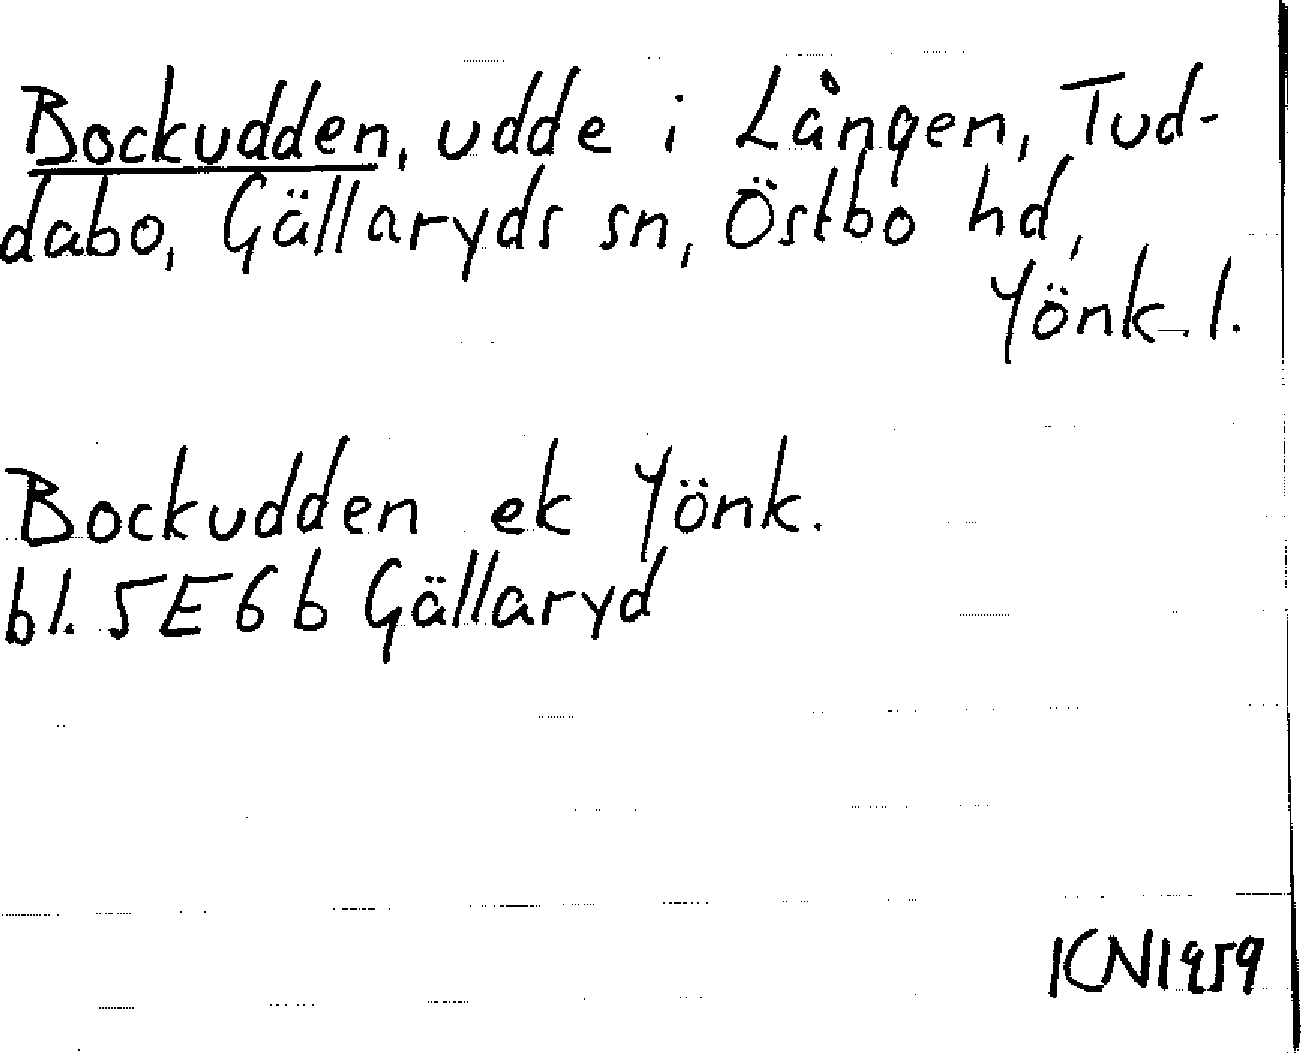 Bockudden, udde i Lången, Tud-
dabo, Gällaryds sn, Östbo hd,
Jönk. l.
Bockudden ek Jönk.
bl. 5E6b Gällaryd
KN1959